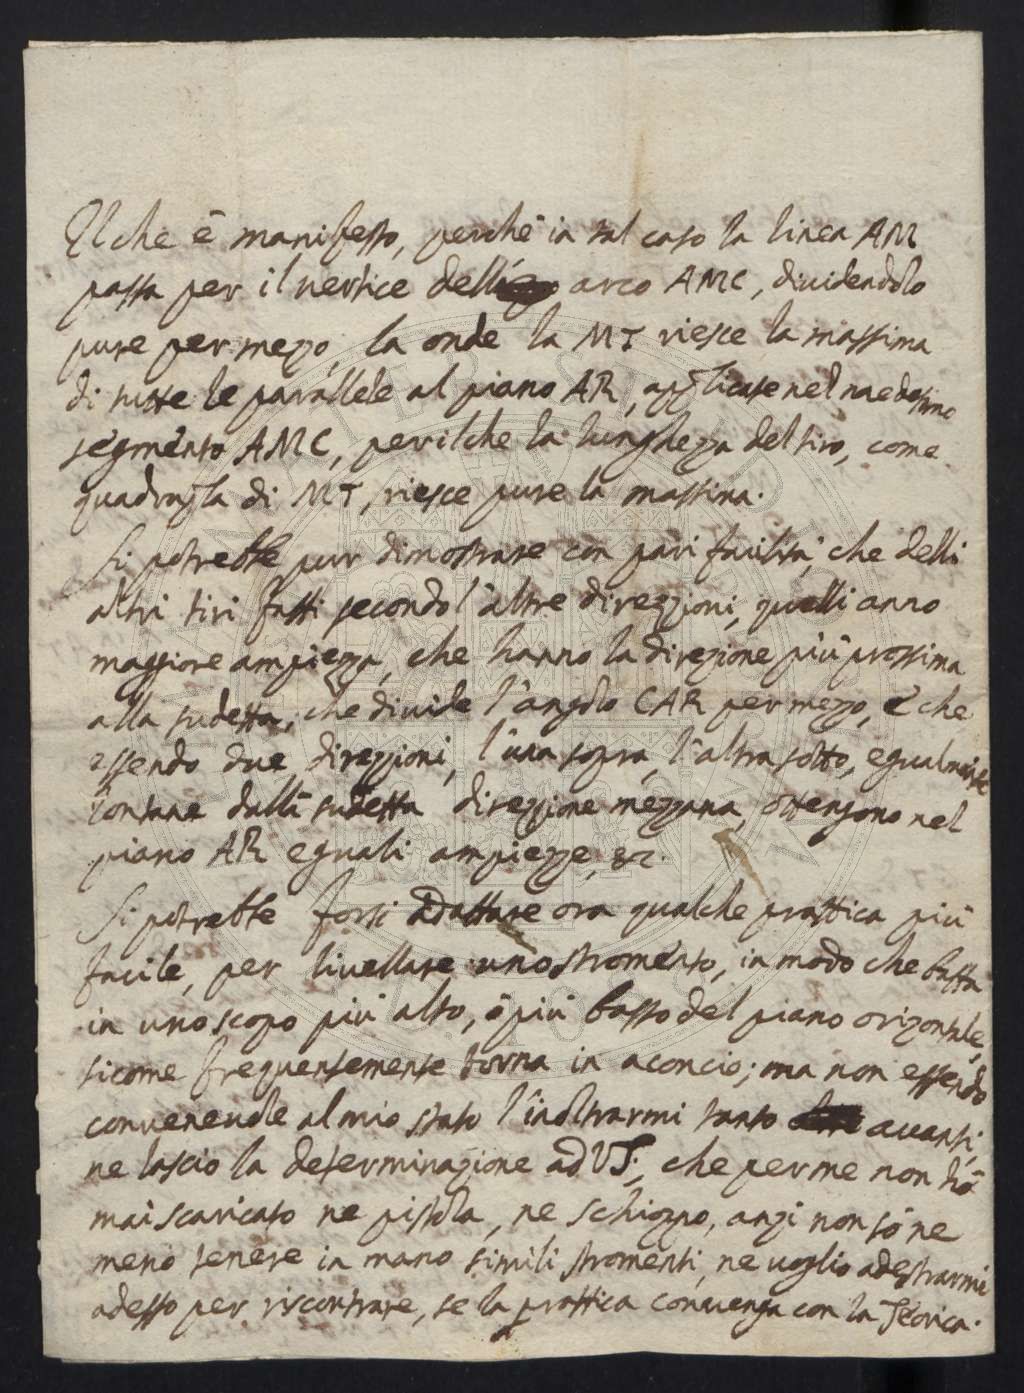 Il che è manifesto, perche in tal caso la linea AM
passa per il vertice dell' arco AMC, dividendolo
pure per mezzo, la onde la MT riesce la massima
di tutte le parallele al piano AR, applicate nel medesimo
segmento AMC, per il che la lunghezza del tiro, come
quadrupla di MT, riesce pure la massima.
Si potrebbe pur dimostrare con pari facilità, che delli
altri tiri fatti secondo l'altre direzzioni, quelli anno
maggiore ampiezza, che hanno la direzione più prossima
alla sudetta, che divide l'angolo CAR per mezzo, e che
essendo due direzzioni, l'una sopra, l'altra sotto, egualmente
lontane dalla sudetta direzzione mezzana, ottengono nel
piano AR eguali ampiezze, &c.
Si potrebbe forsi adattare ora qualche prattica più
facile, per livellare uno stromento, in modo che batta
in uno scopo più alto, ò più basso del piano orizontale,
sicome frequentemente torna in aconcio; ma non essendo
convenevole al mio stato l'inoltrarmi tanto avanti,
ne lascio la determinazione ad VS., che per me non hò
mai scaricato ne pistola, ne schioppo, anzi non sò ne
meno tenere in mano simili stromenti, ne voglio adestrarmi
adesso per riscontrare, se la prattica convenga con la Teorica.